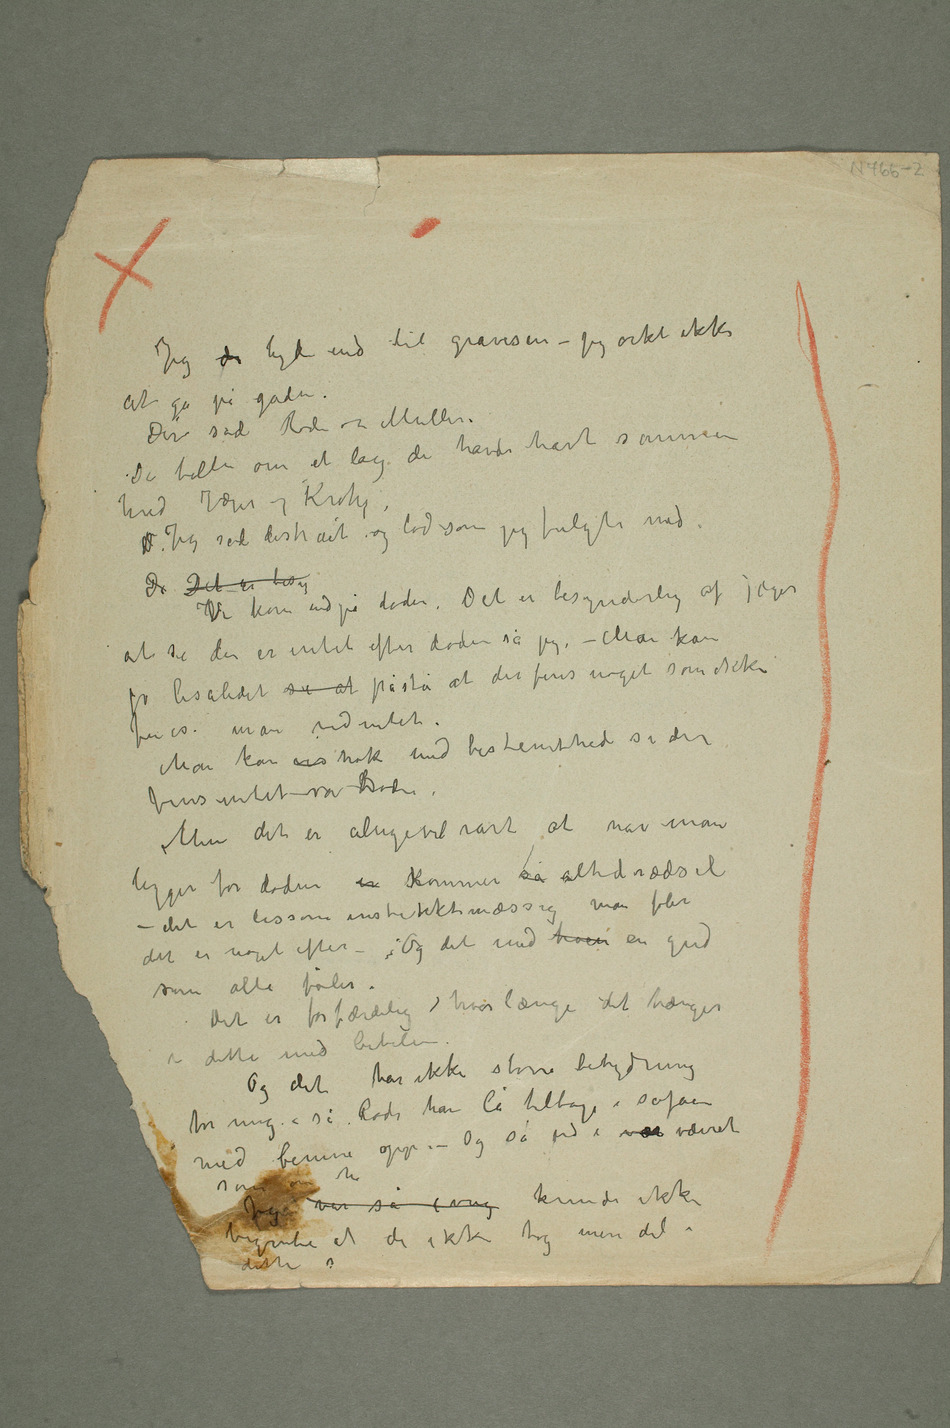 N 466-2
Jeg de lyde ind til gravesen – jeg orket ikke
at gå på gaden.
Der sad Rode og Muller.
De talte om et lag de havde hævt sammen
hved Jæger og Krohg.
Jeg sad distrait og lod som jeg fulgte med.
De Det er besy
Vi kom ind på døden. Det er besynderlig af Jæger
at si der er intet efter døden sa jeg. – Man kan
jo liså lidet si at påstå at der fins noget som ikke
fines. man ved intet.
Man kan nok med bestemthed si der
fins intet sa Rode.
Men det er alligevel rart at når man
ligger for døden er kommer så altid rædsel
– det er lissom instinktmæssig man føler
det er noget efter – Og det med en gud
som alle føler.
Det er forfærdelig hvor længe det hænger
i dette med bibelen.
Og det har ikke større betydning
for mig. sa Rode han lå tilbage i sofaen
med benene opp. – Og så ud i været
som om
Jeg var så ivrig kunde ikke
begribe at de ikke tog mere del i
dette